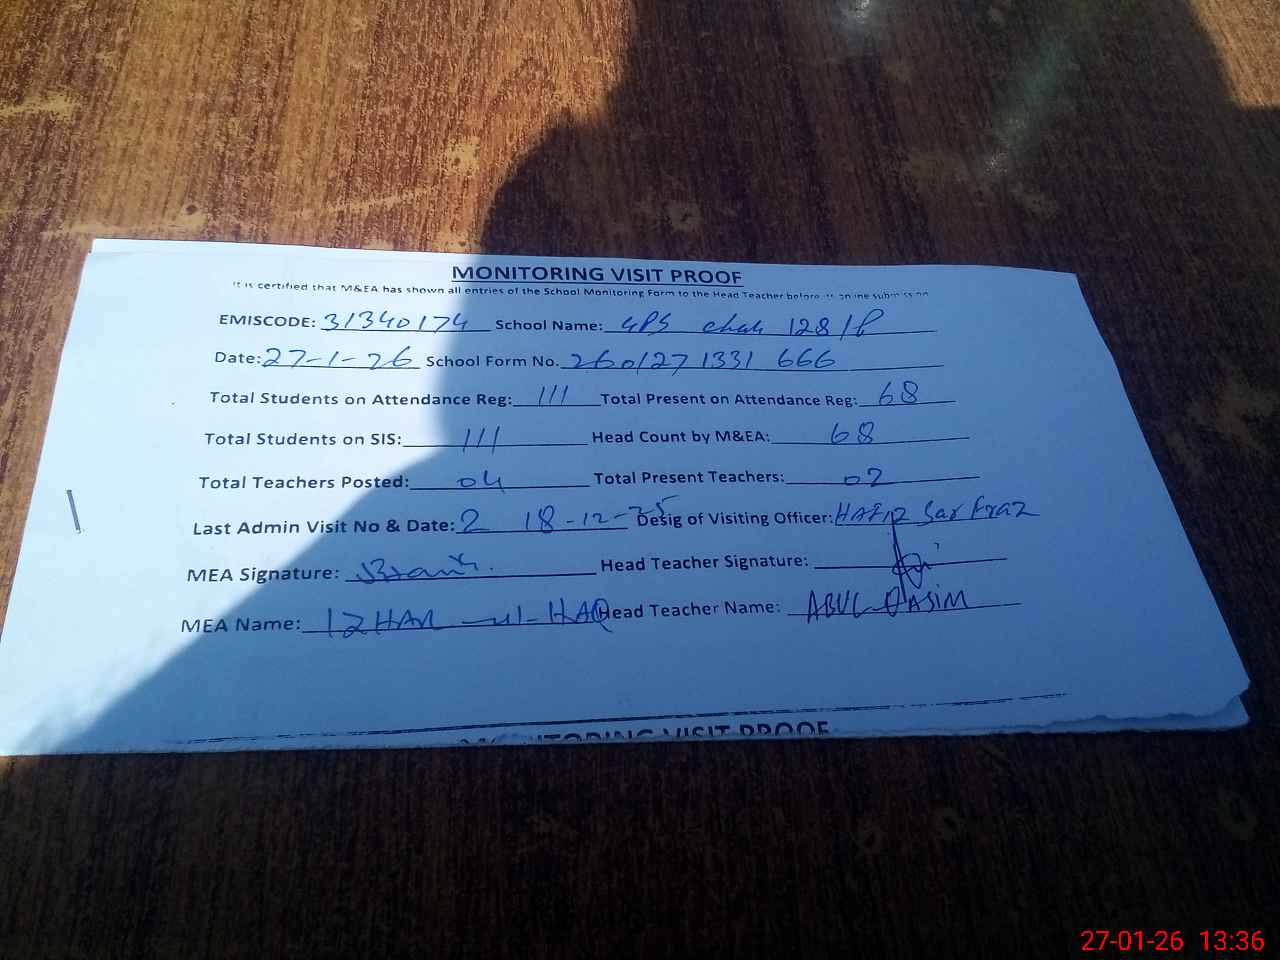 MONITORING VISIT PROOF
It is certified that M&EA has shown all entries of the School Monitoring Form to the Head Teacher before its online submission
EMISCODE: 31340174 School Name: GPS chak 128/P
Date: 27-1-26 School Form No. 260127 1331 666
Total Students on Attendance Reg: 111 Total Present on Attendance Reg: 68
Total Students on SIS: 111 Head Count by M&EA: 68
Total Teachers Posted: 04 Total Present Teachers: 02
Last Admin Visit No & Date: 2 18-12-25 Desig of Visiting Officer: HAFIZ Sarfraz
MEA Signature: Head Teacher Signature:
MEA Name: IZHAR-ul-HAQ Head Teacher Name: ABUL QASIM
MONITORING VISIT PROOF
27-01-26 13:36